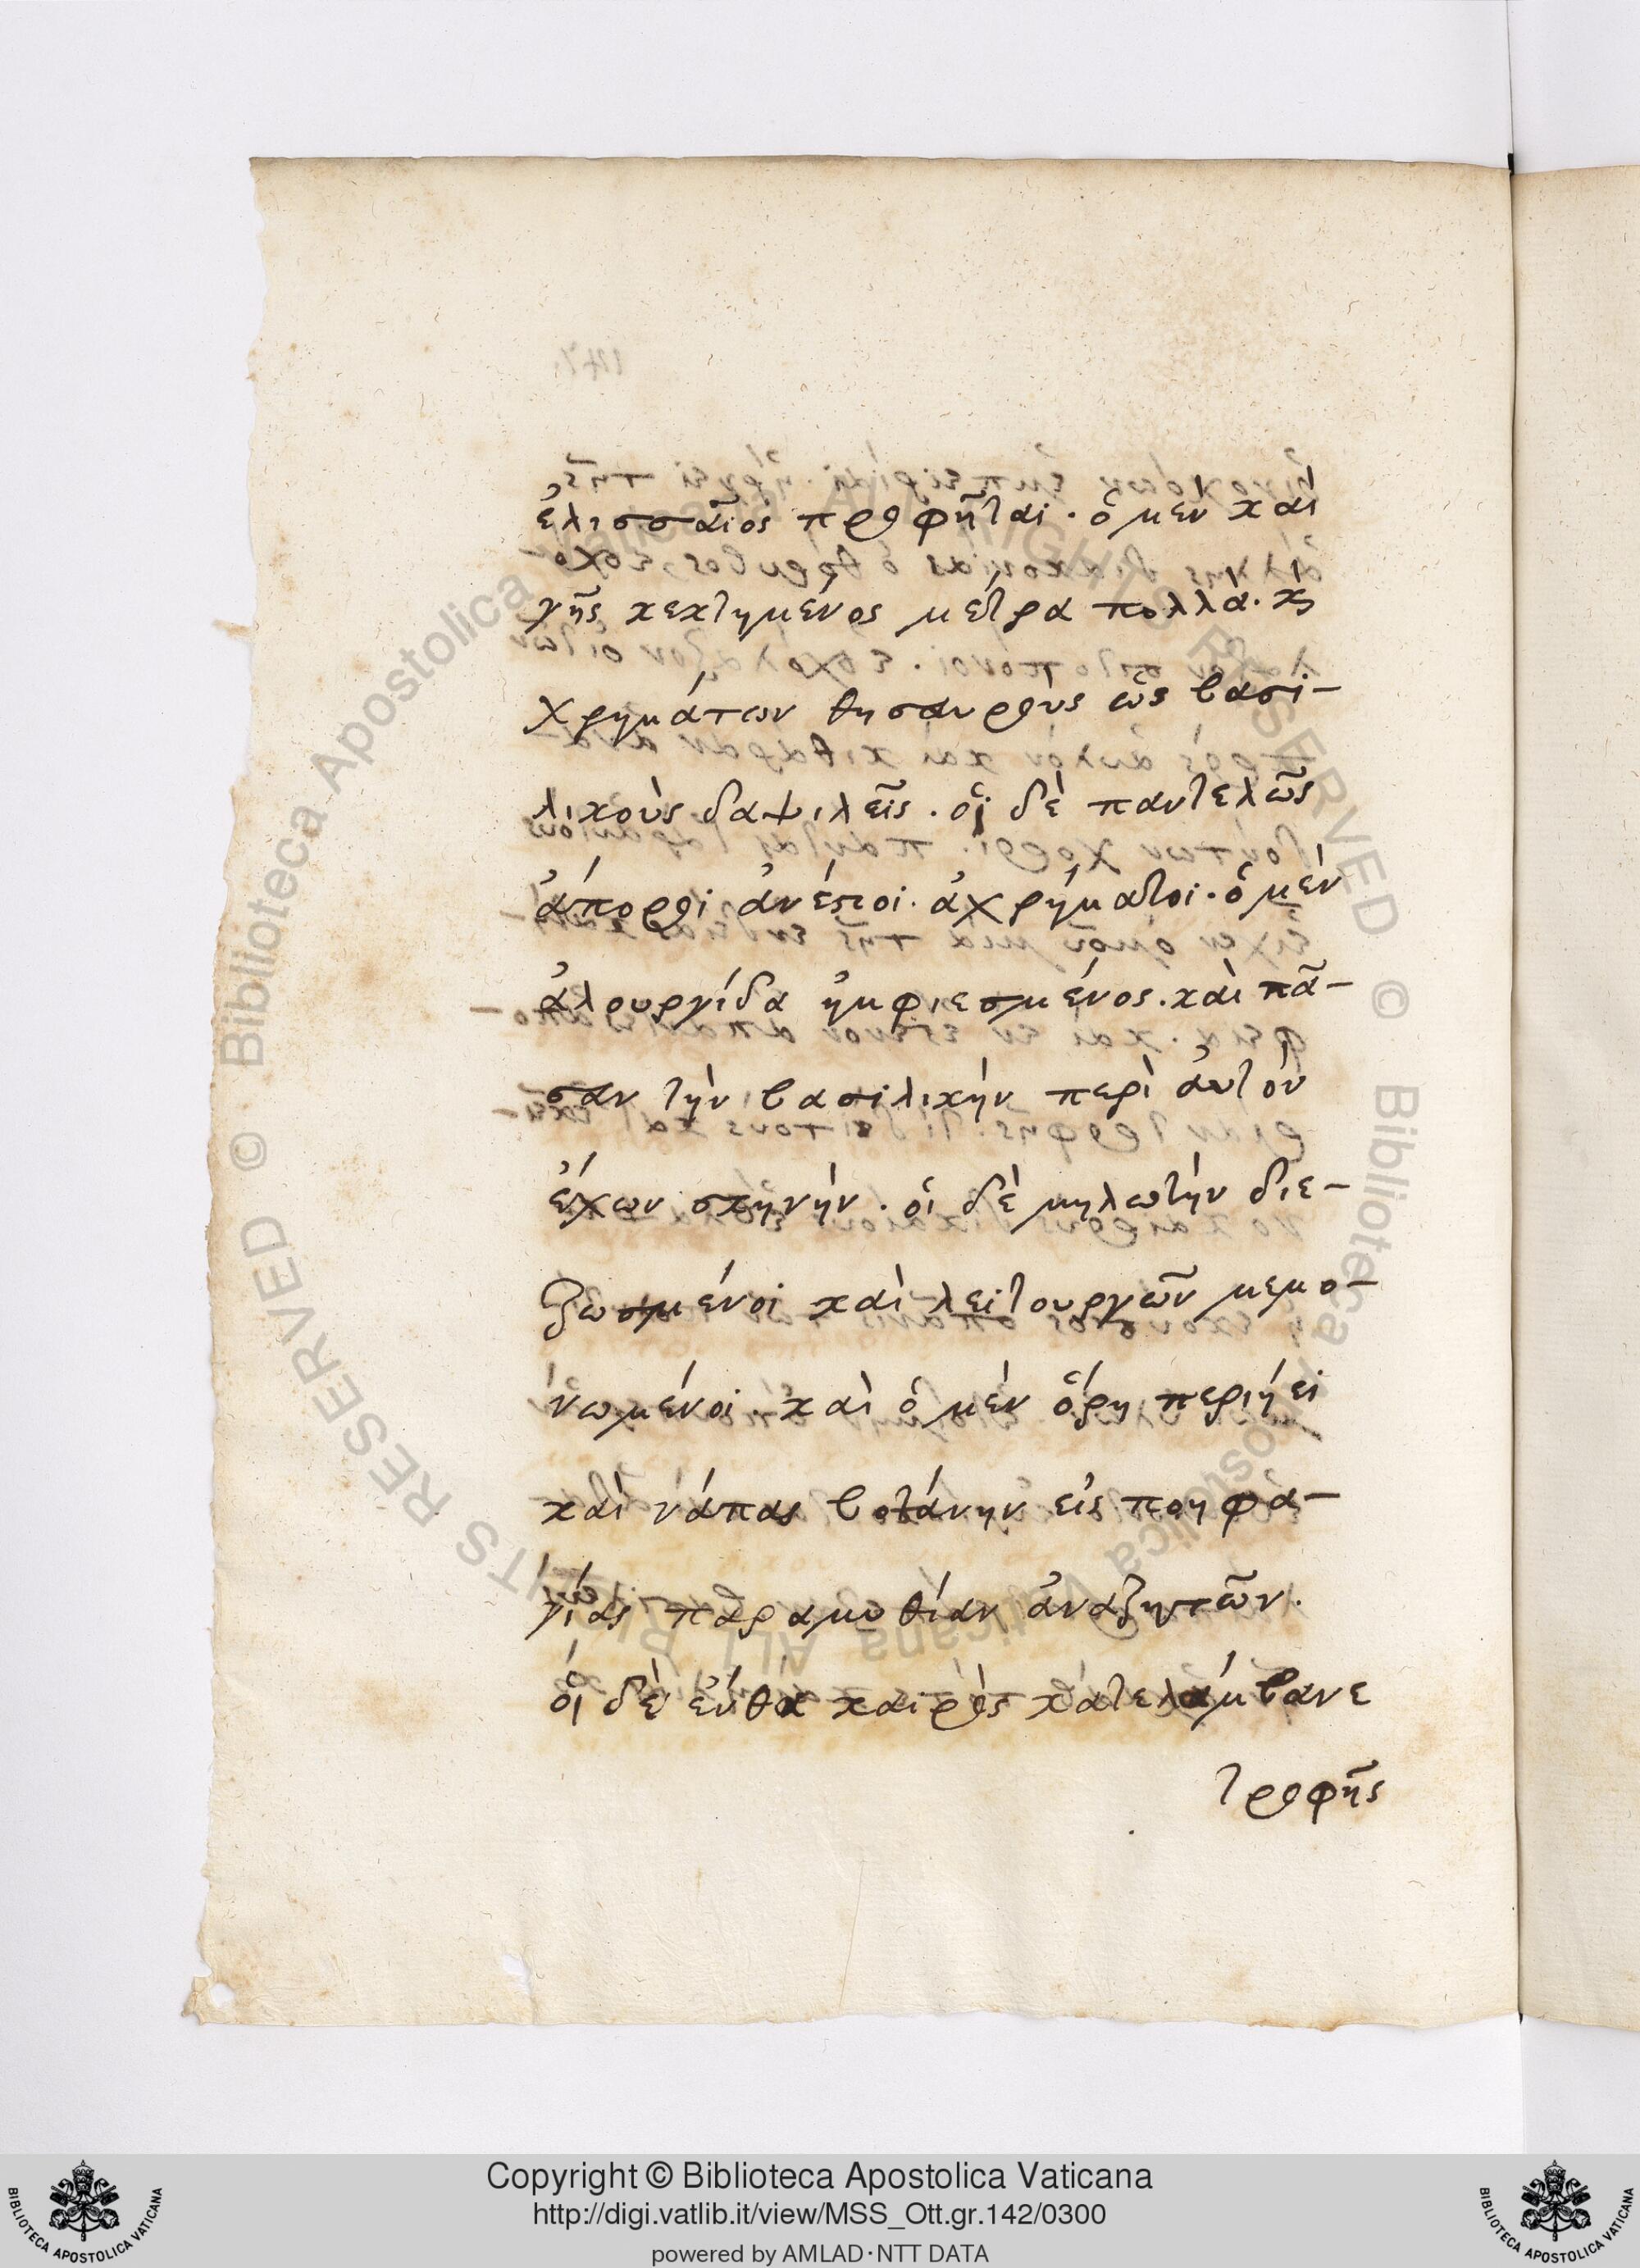 ἐλισσαῖος προφῆται· ὁ μὲν καὶ
γῆς κεκτημένος μέτρα πολλά· κὶ
χρημάτων θησαυροὺς ὡς βασι-
λικοὺς δαψιλεῖς· οἱ δὲ παντελῶς
ἄποροι ἀνέστιοι· ἀχρήματοι· ὁ μὲν
ἁλουργίδα ἠμφιεσμένος· καὶ πᾶ-
σαν τὴν βασιλικὴν περὶ ἀυτὸν
ἔχων σκηνήν· οἱ δὲ μηλωτὴν διε-
ζωσμένοι καὶ λειτουργῶν μεμο-
νωμένοι· καὶ ὁ μὲν ὄρη περιήει
καὶ νάπας βοτάνην εἰς ποηφα-
γίας παραμυθίαν ἀναζητῶν·
οἱ δὲ ἔνθα καιρὸς κατελάμβανε
τροφῆς
Copyright © Biblioteca Apostolica Vaticana
http://digi.vatlib.it/view/MSS_Ott.gr.142/0300
powered by AMLAD·NTT DATA
BIBLIOTECA APOSTOLICA VATICANA
BIBLIOTECA APOSTOLICA VATICANA